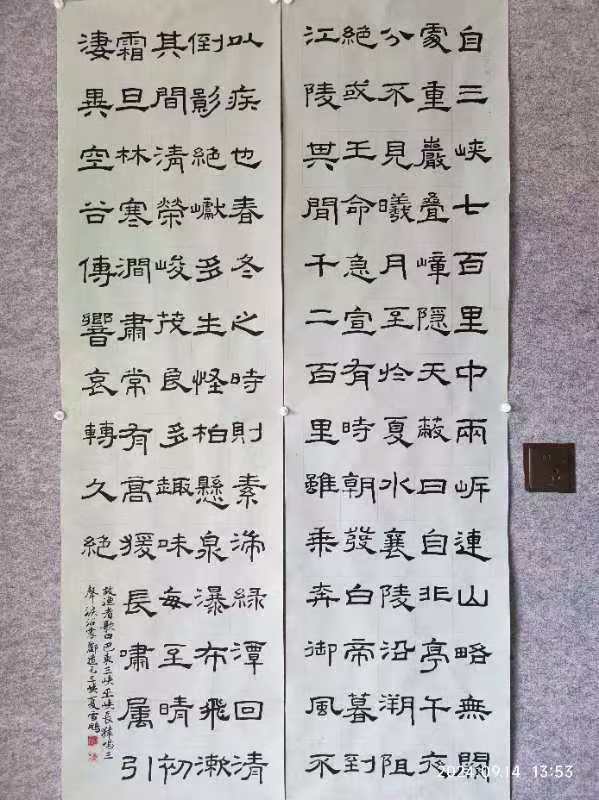 自三峽七百里中兩岸連山略無闕
處重巖疊嶂隱天蔽日自非亭午夜
分不見曦月至於夏水襄陵沿溯阻
絕或王命急宣有時朝發白帝暮到
江陵其間千二百里雖乘奔御風不
以疾也春冬之時則素湍綠潭回清
倒影絕巘多生怪柏懸泉瀑布飛漱
其間清榮峻茂良多趣味每至晴初
霜旦林寒澗肅常有高猨長嘯屬引
淒異空谷傳響哀轉久絕
故漁者歌曰巴東三峽巫峽長猿鳴三
聲淚沾裳酈道元三峽夏雪
2024.09.14 13:53